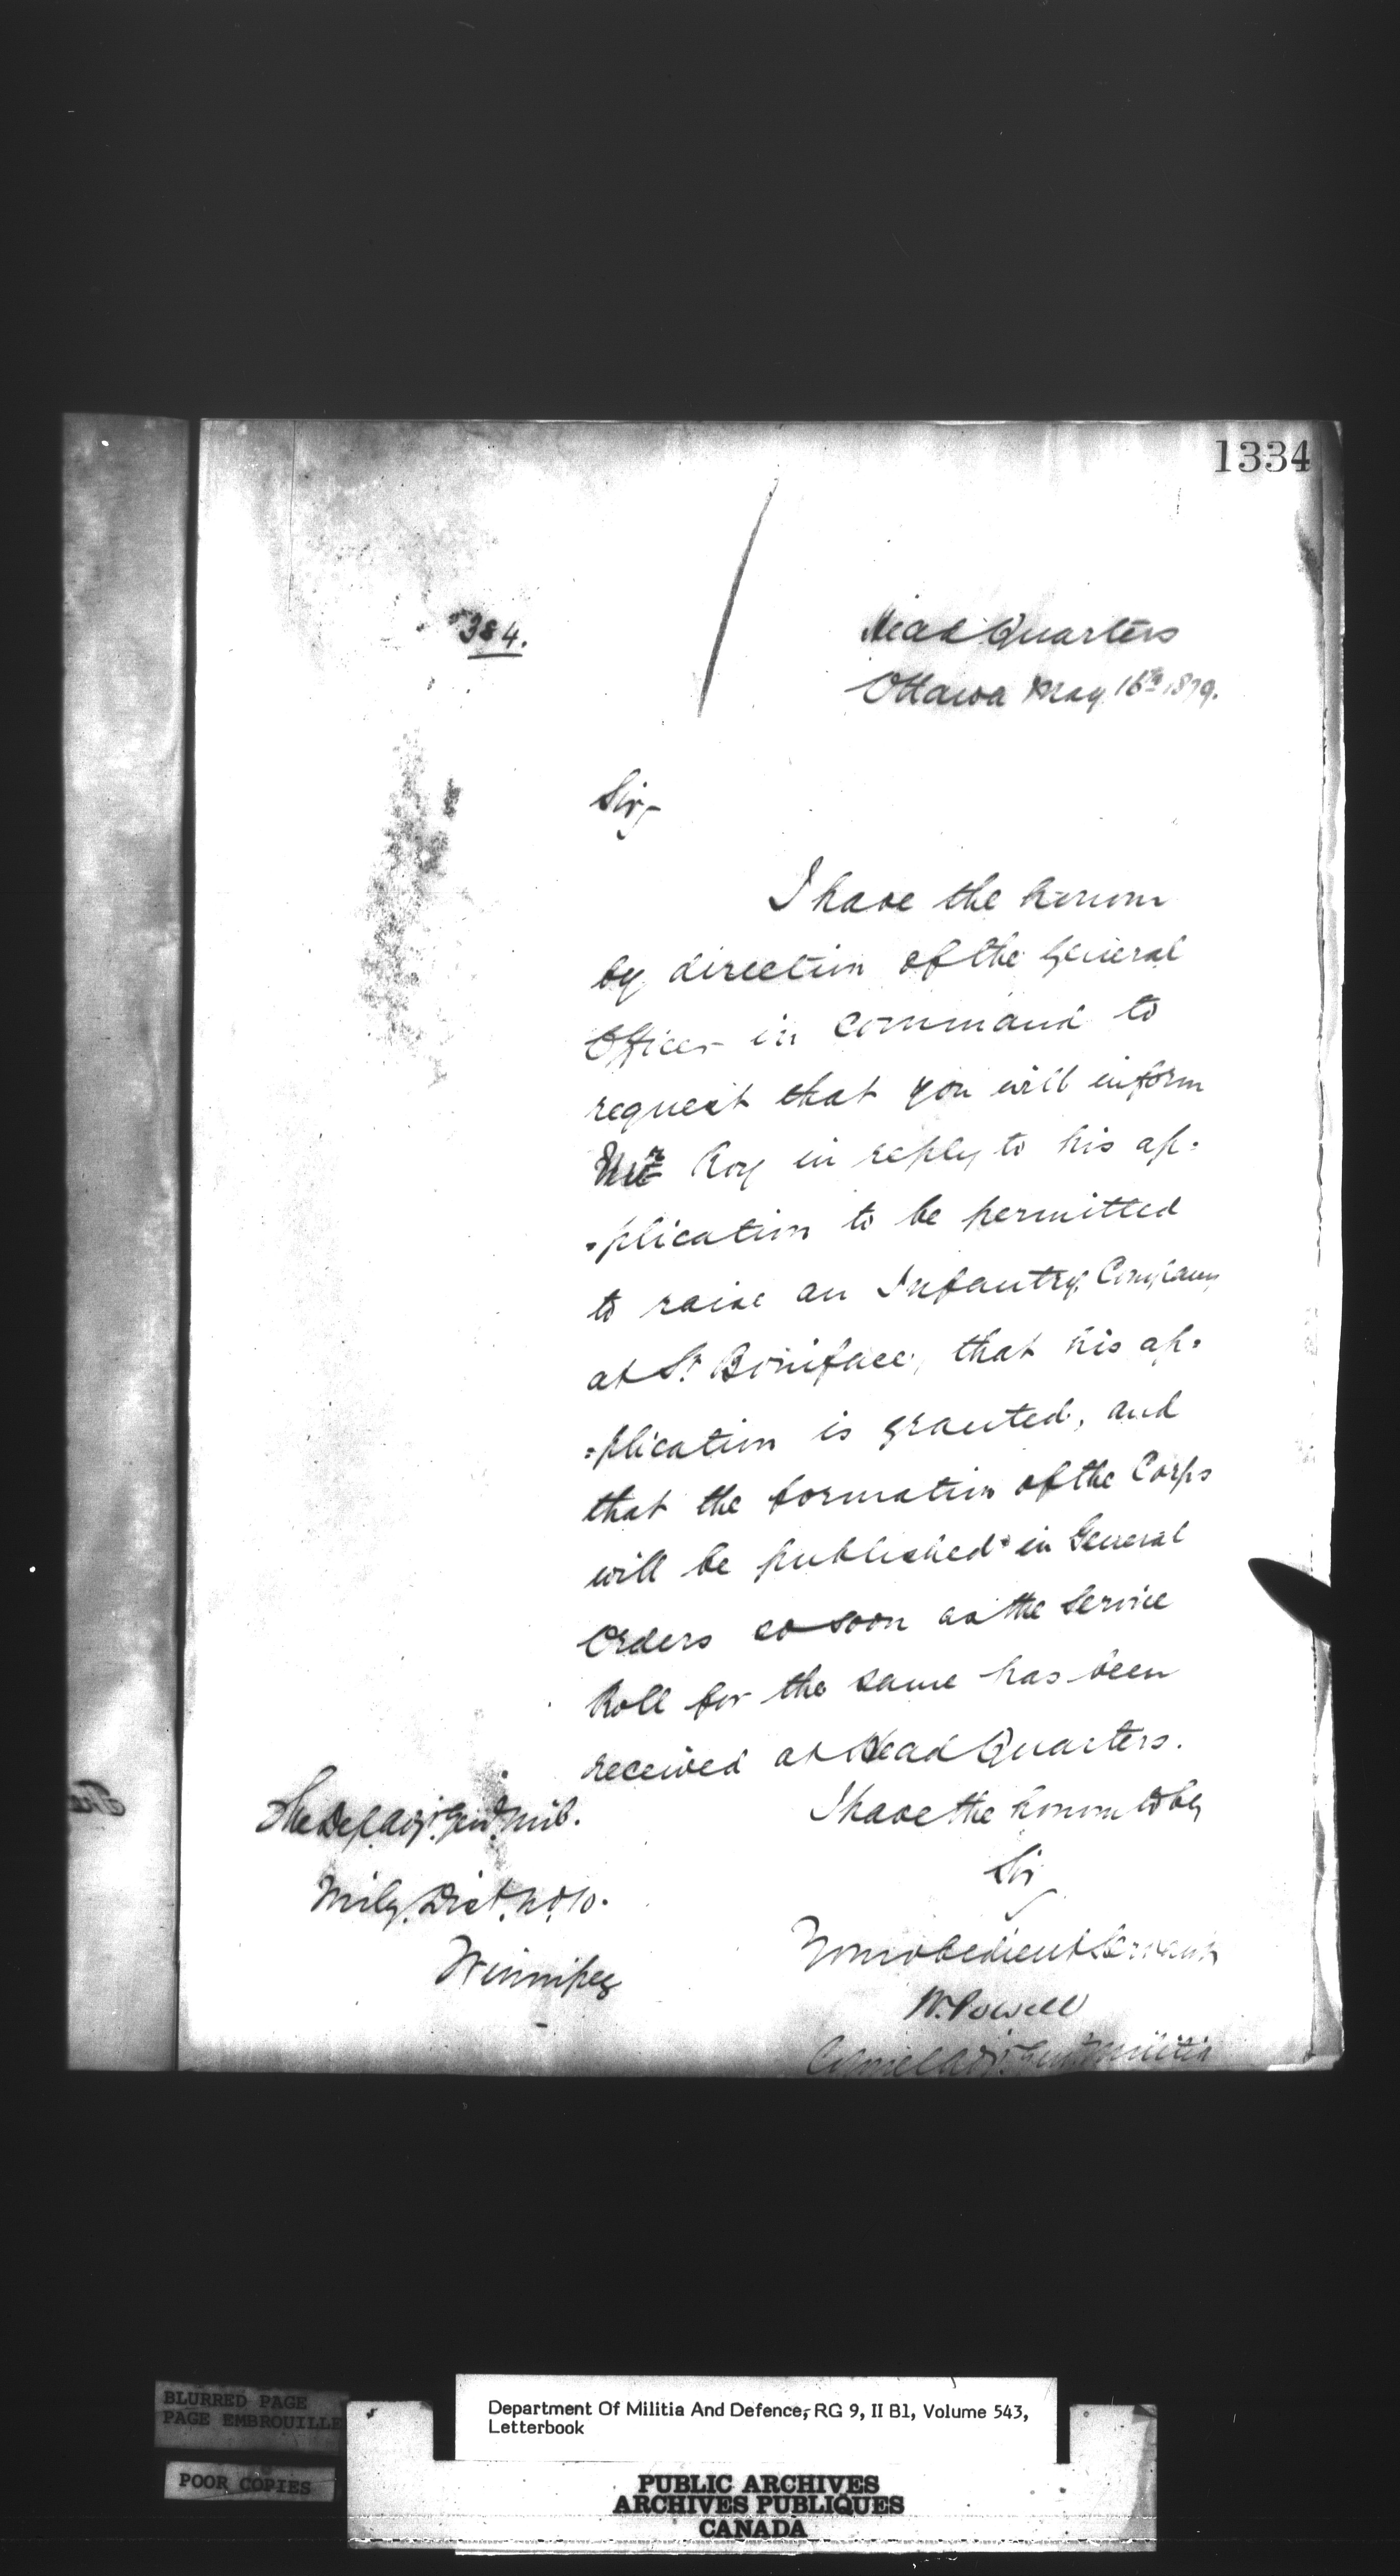 1334
384.
Head Quarters
Ottawa May 16th 1879.
Sir,
I have the honour
by direction of the General
Officer in Command to
request that you will inform
Mr Roy in reply to his ap=
=plication to be permitted
to raise an Infantry Company
at St. Boniface, that his ap=
=plication is granted, and
that the formation of the Corps
will be published in General
Orders so soon as the Service
Roll for the same has been
received at Head Quarters.
I have the honour to be,
Sir
Your obedient Servant
W. Powell
Colonel Adjt. Genl. Militia
The Dep. Adjt. Genl. Mil.
Mily. Dist. No. 10.
Winnipeg
BLURRED PAGE
PAGE EMBROUILLE
POOR COPIES
Department Of Militia And Defence, RG 9, II B1, Volume 543,
Letterbook
PUBLIC ARCHIVES
ARCHIVES PUBLIQUES
CANADA